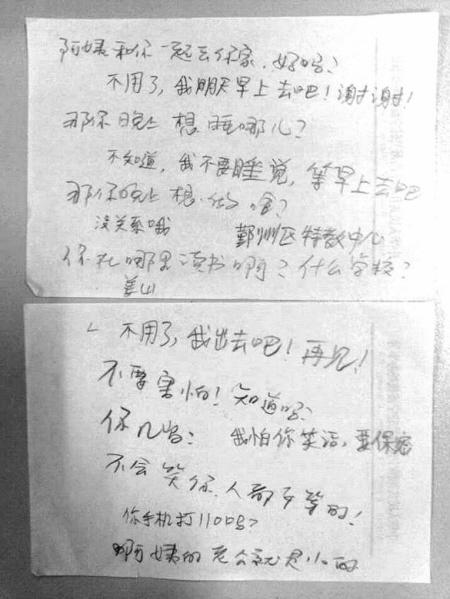 阿姨和你一起去你家，好吗？
不用了，我明天早上去吧！谢谢！
那你晚上想睡哪儿？
不知道，我不要睡觉，等早上去吧
那你晚上想做啥？
没关系哦 鄞州区特教中心
你在哪里读书啊？什么学校？
姜山
不用了，我出去吧！再见！
不要害怕！知道吗？
你几岁？ 我怕你笑话，要保密
不会笑你，人都平等的！
你手机打110吗？
啊姨的